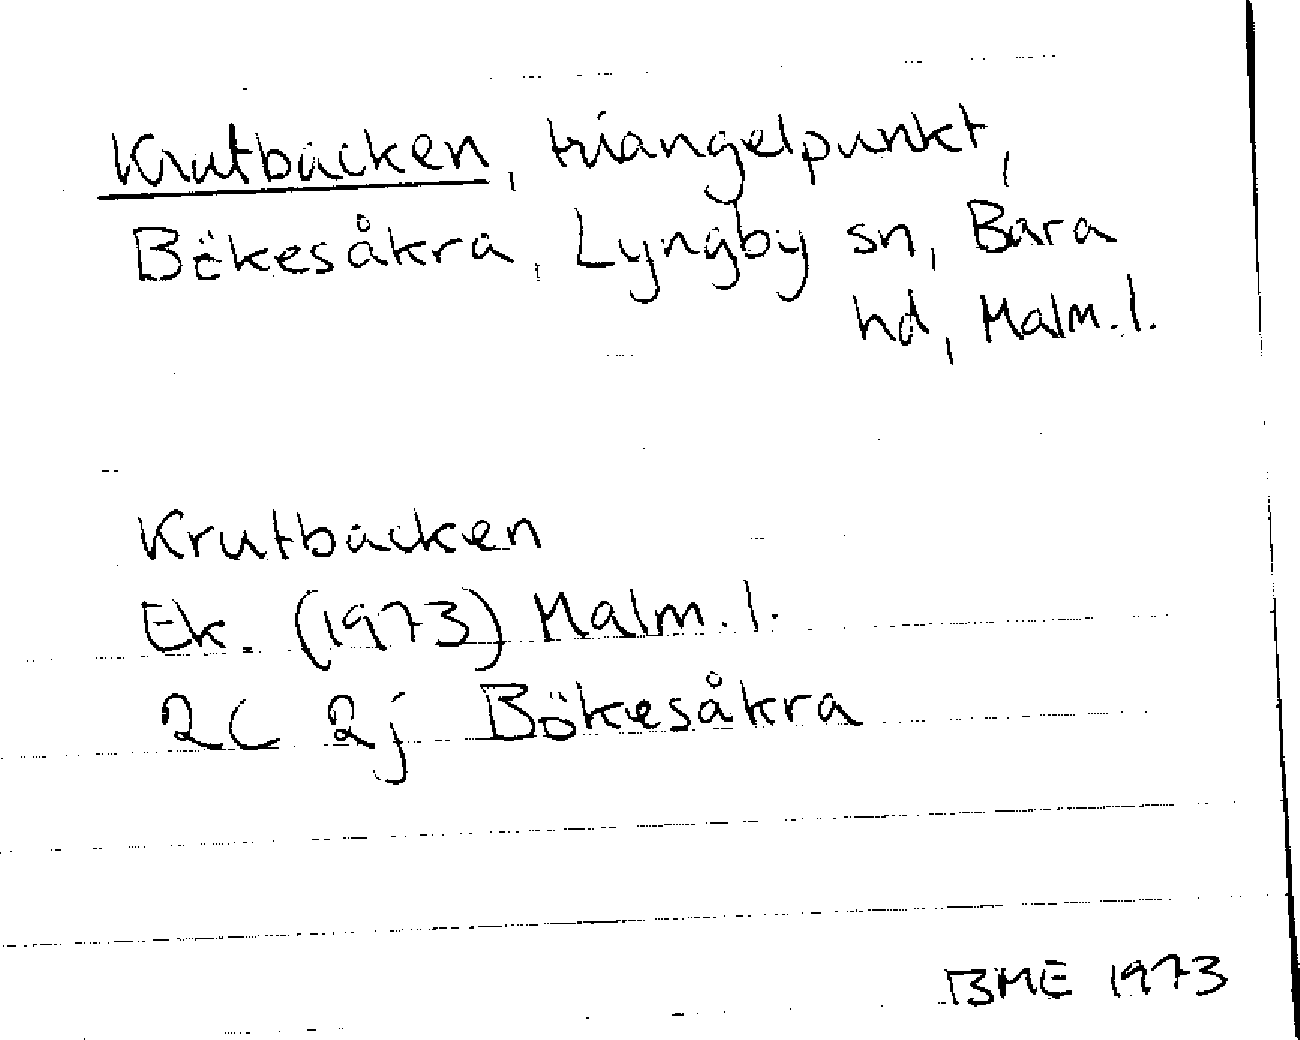 Krutbacken, triangelpunkt,
Bökesåkra, Lyngby sn, Bara
hd, Malm. l.
Krutbacken
Ek. (1973) Malm. l.
2C 2j Bökesåkra
BME 1973